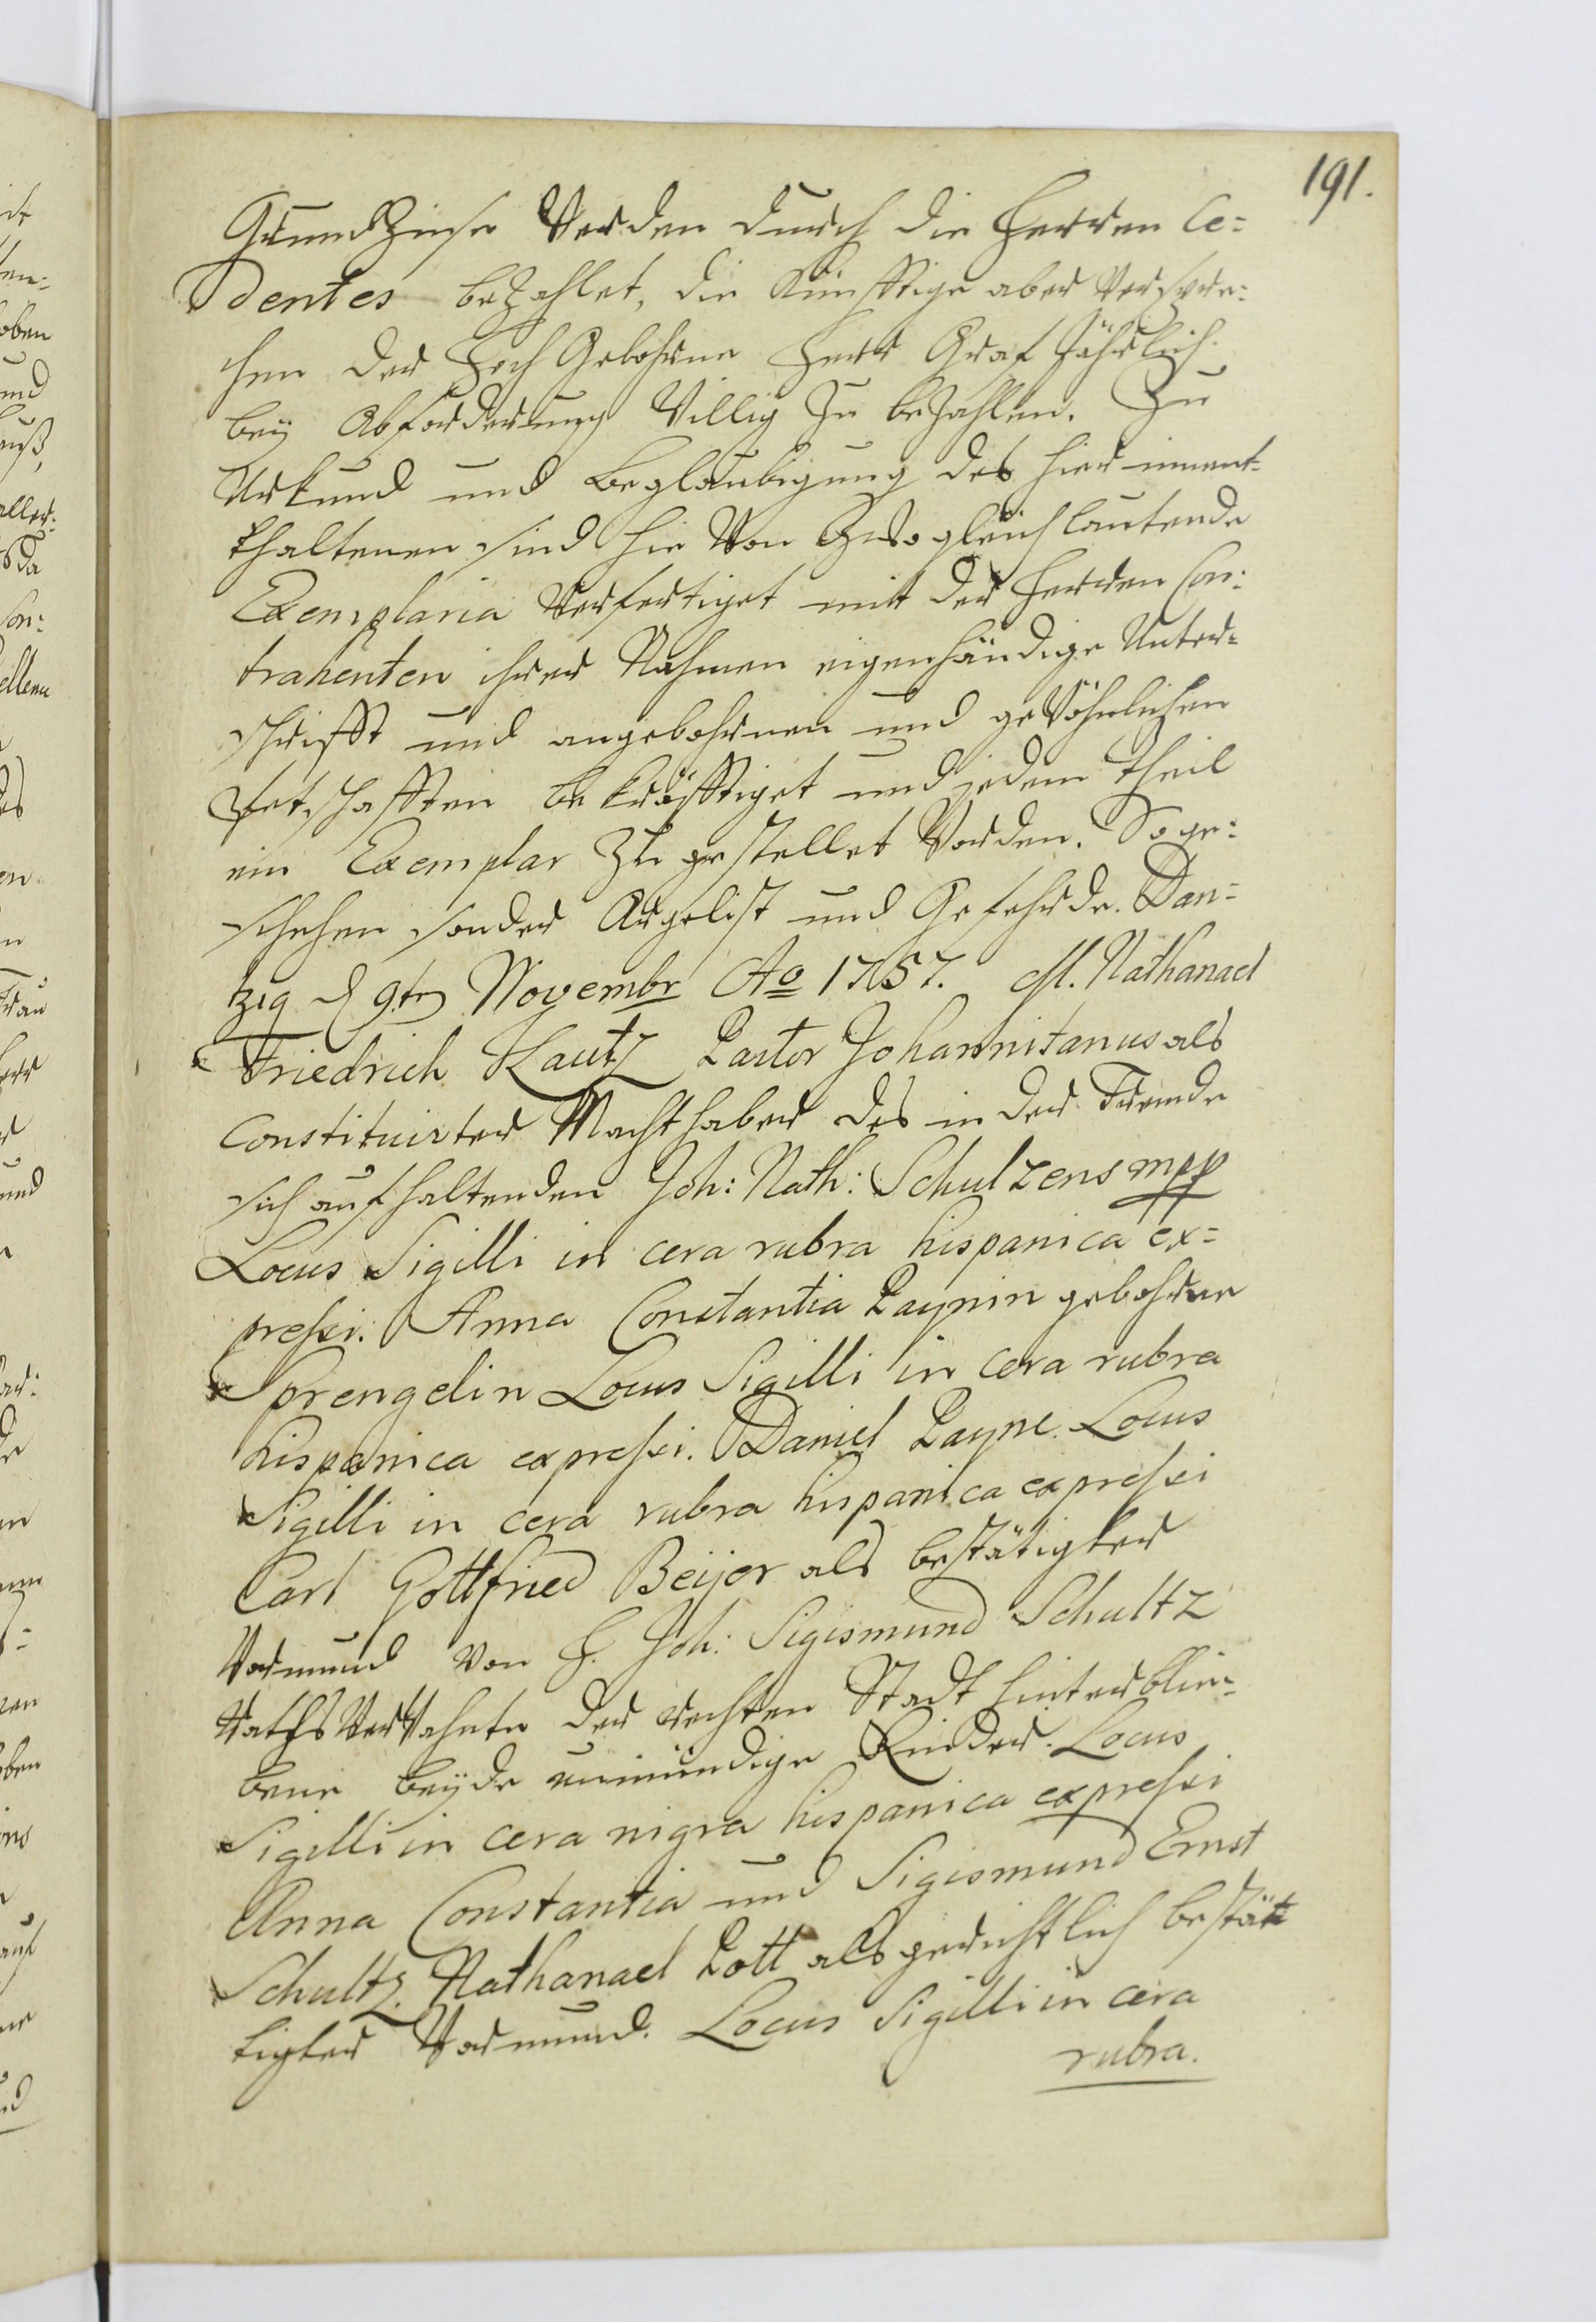 191.
Grund Zinse Werden durch die Herren Ce-
dentes bezahlet, die Künfftige aber verspre-
chen der Hoch Gebohrne Herr Graf Jährlich
beÿ Abforderung Willig zu bezahlen. Zu
Urkund und Beglaubigung des hier innent-
thaltenen sind hie Von Zwo gleich lautende
Exemplaria Verfertiget mit der Herren Con-
trahenten ihrer Nahmen eigenhändige Unter-
schrifft und angebohrnen und geWöhnlichen
Petschafften bekräfftiget und jedem Theil
ein Exemplar Zu gestellet Worden. So ge-
schehen sonder Argelist und Gefehrde. Dan-
tzig d 9ten Novembr Ao 1757. M. Nathanael
Friedrich Kautz Pastor Johannitanus als
Constituirter Machthaber des in der Fremde
sich aufhaltenden Joh: Nath: Schultzens mpp
Locus Sigilli in cera rubra hispanica ex-
pressi. Anna Constantia Paynin gebohrne
Sprengelin Locus Sigilli in cera rubra
hispanica expressi. Daniel Payne. Locus
Sigilli in cera rubra hispanica expressi
Carl Gottfried Beijer als bestätigter
Vormund Von H. Joh: Sigismund Schultz
Raths VerWahnte der rechten Stadt hinterblie-
bene beÿde unmündige Kinder. Locus
Sigilli in cera nigra hispanica expressi
Anna Constantia und Sigismund Ernst
Schultz. Nathanael Pott als gerichtlich bestät-
tigter Vormund. Locus Sigilli in cera
rubra.